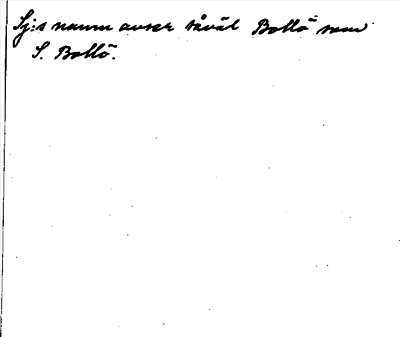 Sj:s namn avser såväl Bollö som
S. Bollö.